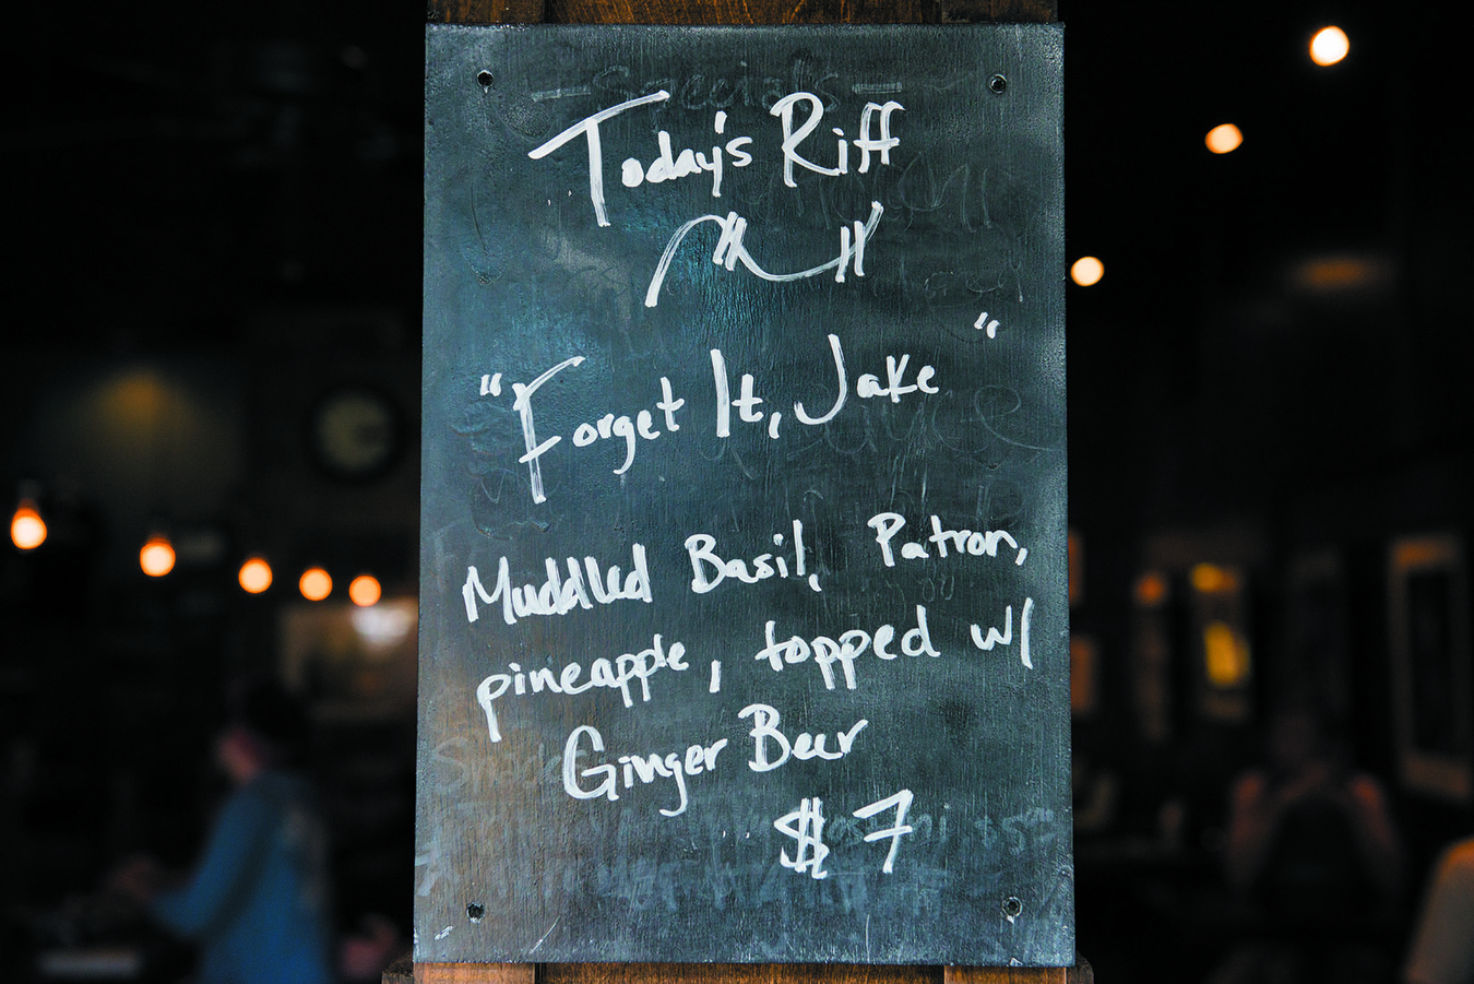 Specials
Today's Riff
"Forget It, Jake"
Muddled Basil, Patron,
pineapple, topped w/
Ginger Beer
$7